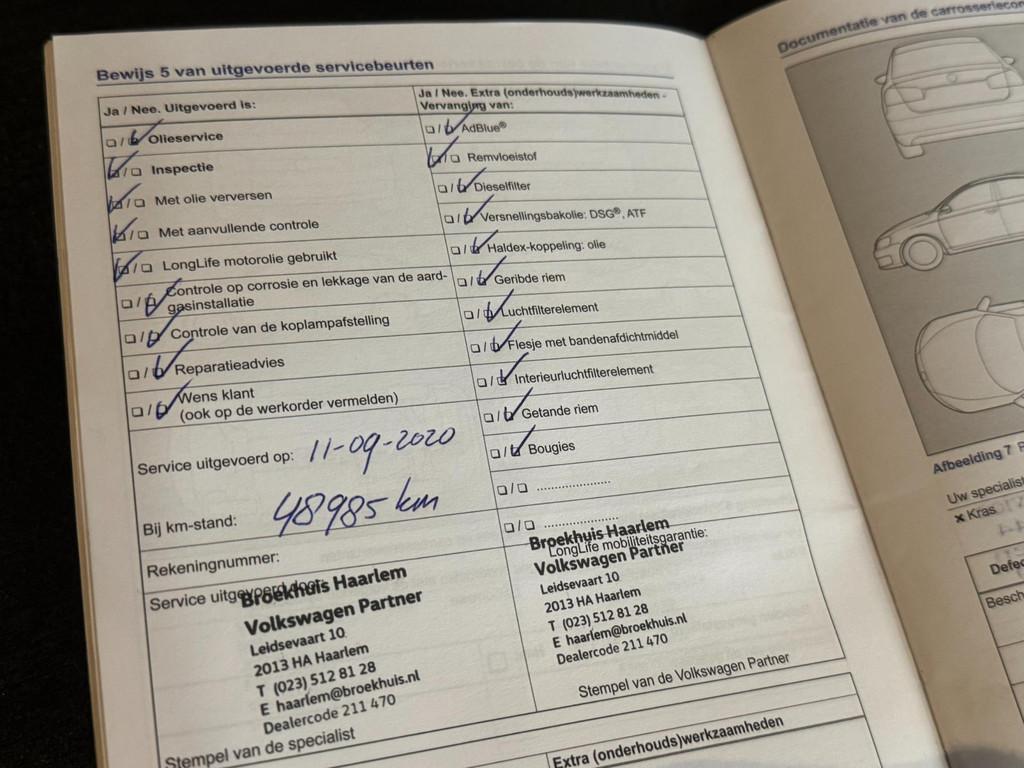 Bewijs 5 van uitgevoerde servicebeurten
Ja / Nee. Uitgevoerd is:
☐/☑ Olieservice
☑/☐ Inspectie
☑/☐ Met olie verversen
☑/☐ Met aanvullende controle
☑/☐ LongLife motorolie gebruikt
☐/☑ Controle op corrosie en lekkage van de aard-
gasinstallatie
☐/☑ Controle van de koplampafstelling
☐/☑ Reparatieadvies
☐/☑ Wens klant
(ook op de werkorder vermelden)
Service uitgevoerd op: 11-09-2020
Bij km-stand: 48985 km
Rekeningnummer:
Service uitgevoerd door:
Broekhuis Haarlem
Volkswagen Partner
Leidsevaart 10
2013 HA Haarlem
T (023) 512 81 28
E haarlem@broekhuis.nl
Dealercode 211 470
Stempel van de specialist
Ja / Nee. Extra (onderhouds)werkzaamheden -
Vervanging van:
☐/☑ AdBlue®
☑/☐ Remvloeistof
☐/☑ Dieselfilter
☐/☑ Versnellingsbakolie: DSG®, ATF
☐/☑ Haldex-koppeling: olie
☐/☑ Geribde riem
☐/☑ Luchtfilterelement
☐/☑ Flesje met bandenafdichtmiddel
☐/☑ Interieurluchtfilterelement
☐/☑ Getande riem
☐/☑ Bougies
☐/☐ .....................
☐/☐ .....................
LongLife mobiliteitsgarantie:
Broekhuis Haarlem
Volkswagen Partner
Leidsevaart 10
2013 HA Haarlem
T (023) 512 81 28
E haarlem@broekhuis.nl
Dealercode 211 470
Stempel van de Volkswagen Partner
Extra (onderhouds)werkzaamheden
Documentatie van de carrosseriecon
Afbeelding 7
Uw specialist
x Kras
Defec
Besch